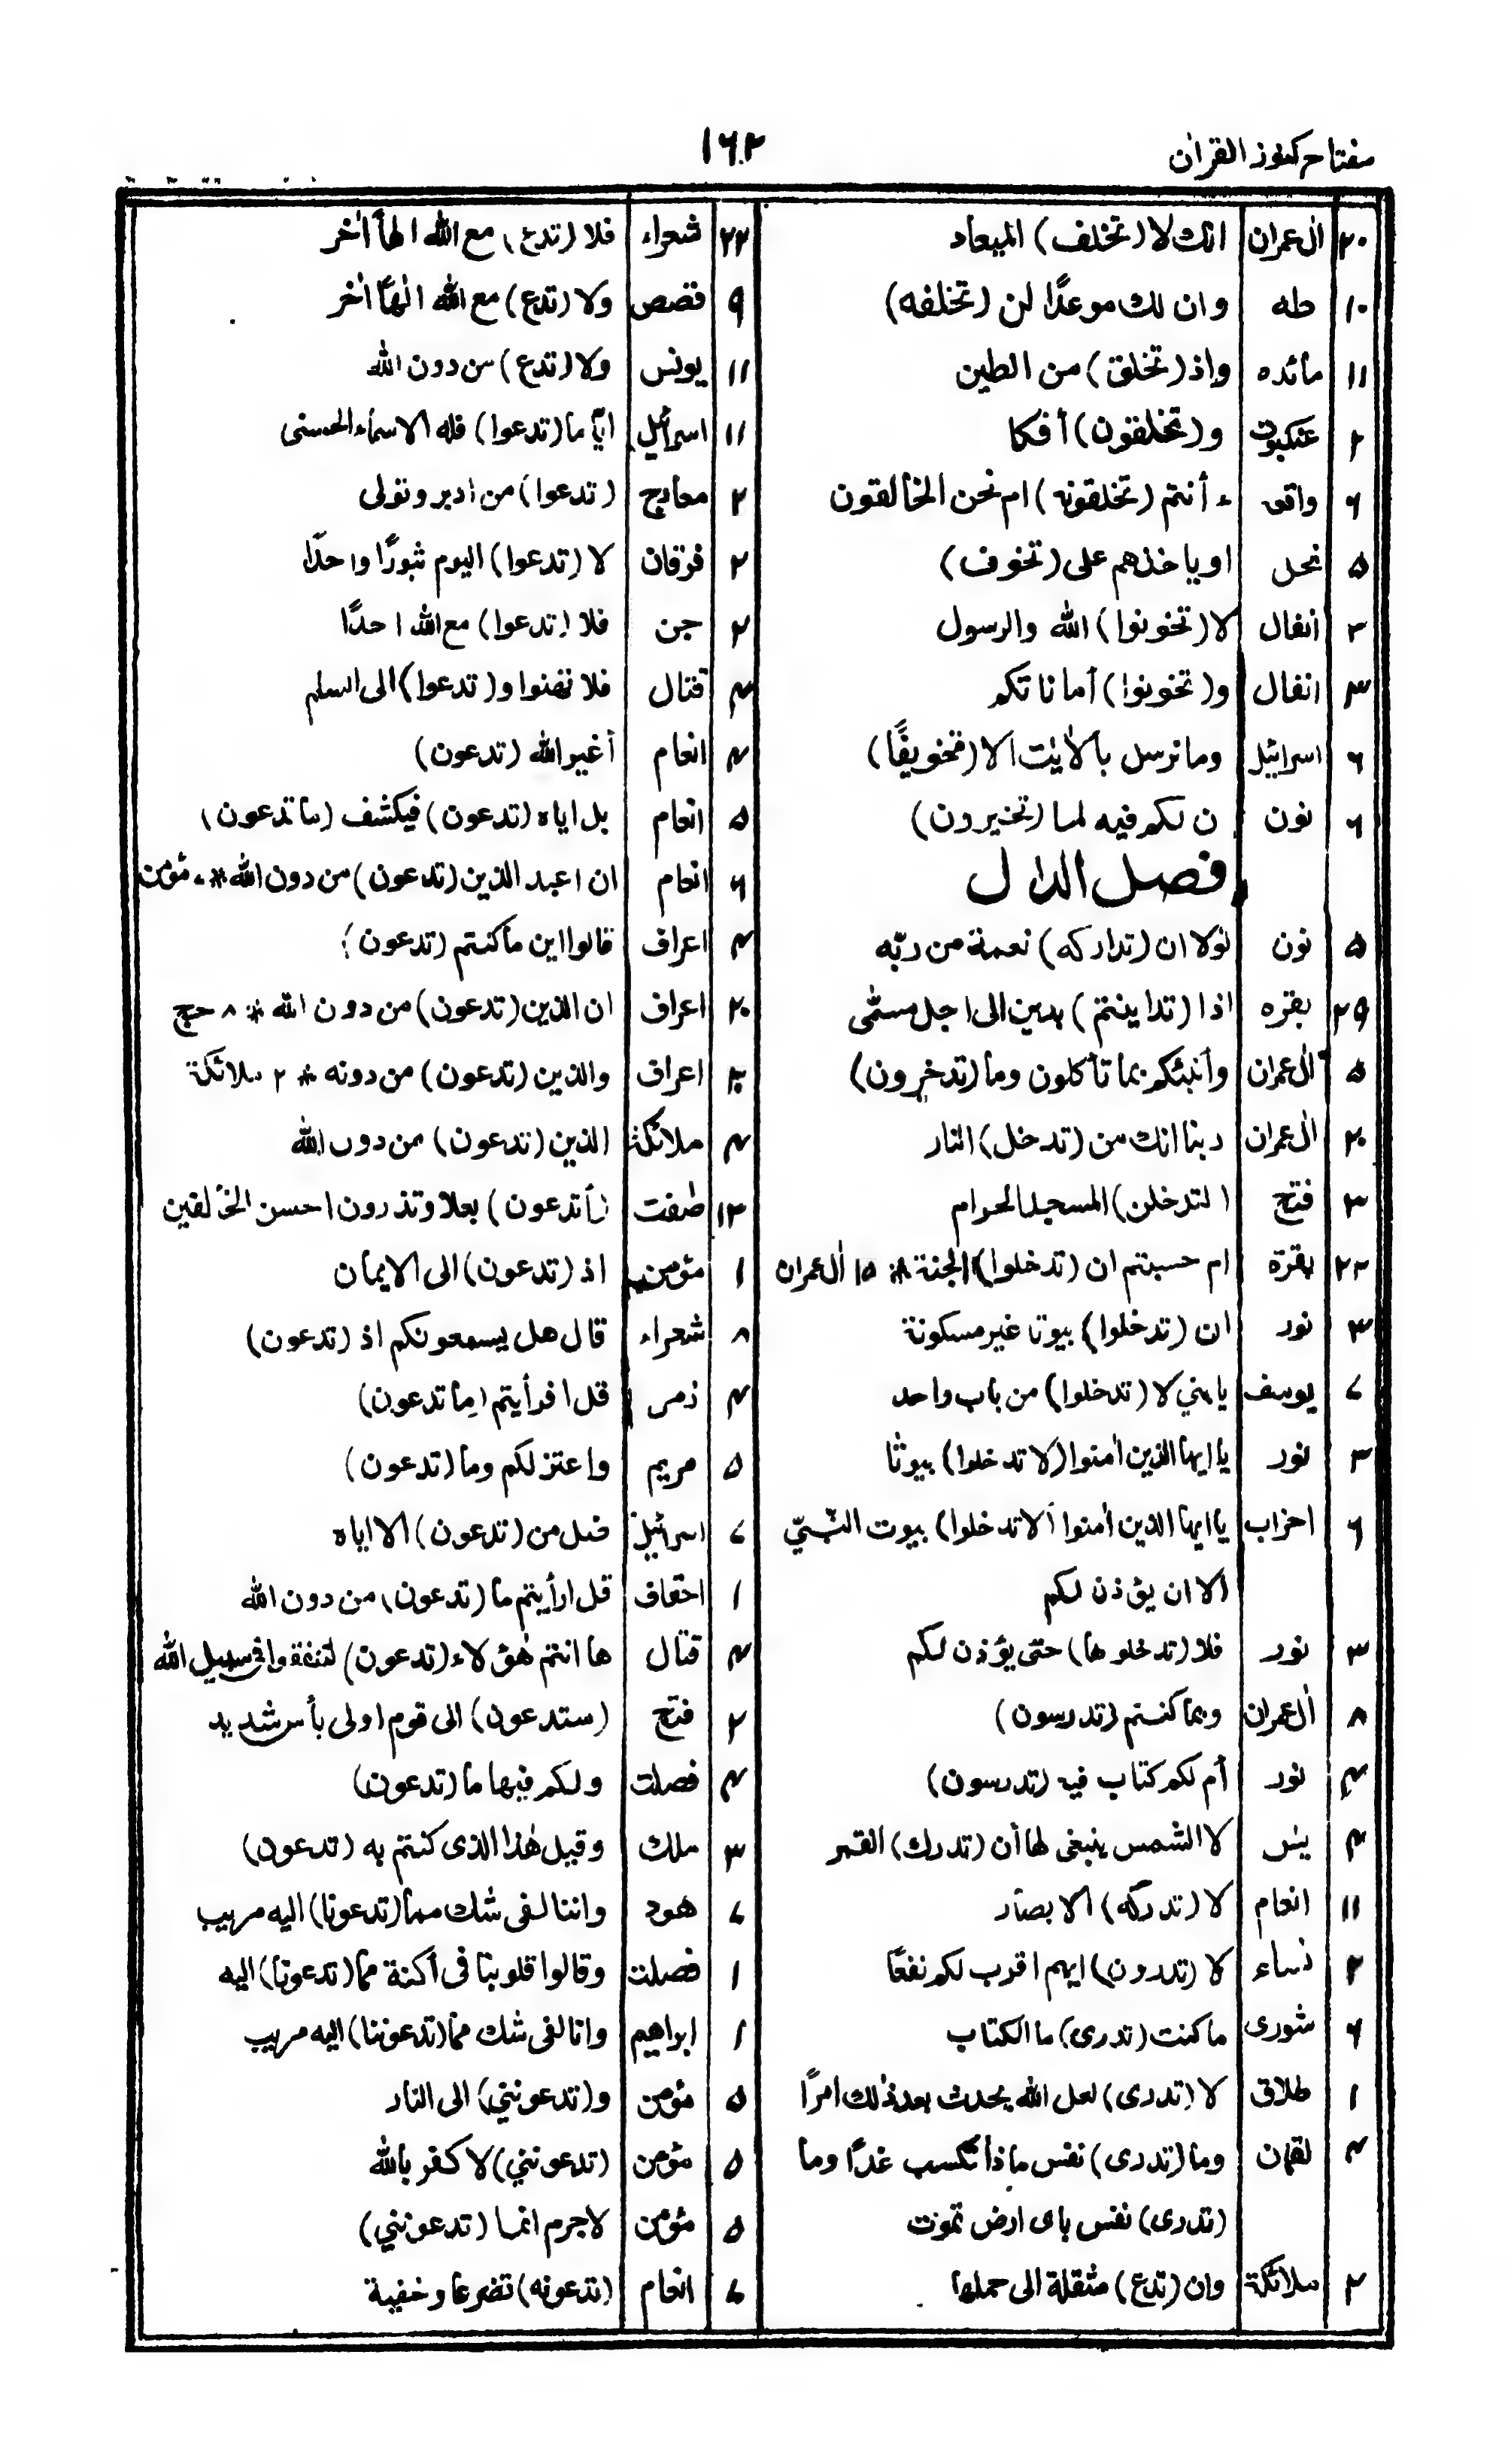 مفتاح كنوز القرآن
۱۶۲
۲۰ اٰل عمران انك لا (تخلف) الميعاد
۱۰ طه وان لك موعدًا لن (تخلفه)
۱۱ مائده واذ (تخلق) من الطين
۲ عنكبوت و(تخلقون) أفكا
۶ واقعه ء أنتم (تخلقونه) ام نحن الخالقون
۵ نحل او ياخذهم على (تخوف)
۳ انفال لا (تخونوا) الله والرسول
۳ انفال و(تخونوا) أماناتكم
۶ اسرائيل وما نرسل بالاٰيٰت الا (تخويفًا)
۶ نون ن لكم فيه لما (تخيرون)
فصل الدال
۵ نون لولا ان (تداركه) نعمة من ربّه
۲۹ بقره اذا (تداينتم) بدين الى اجل مسمّى
۵ اٰل عمران وأنبئكم بما تأكلون وما (تدخرون)
۲۰ اٰل عمران ربنا انك من (تدخل) النار
۳ فتح (لتدخلن) المسجد الحرام
۲۲ بقرة ام حسبتم ان (تدخلوا) الجنة * ۱۵ اٰل عمران
۳ نور ان (تدخلوا) بيوتا غير مسكونة
۷ يوسف يا بني لا (تدخلوا) من باب واحد
۳ نور يا ايها الذين اٰمنوا (لا تدخلوا) بيوتا
۶ احزاب يا ايها الذين اٰمنوا (لا تدخلوا) بيوت النّبيّ
الا ان يؤذن لكم
۳ نور فلا (تدخلوها) حتى يؤذن لكم
۸ اٰل عمران وبما كنتم (تدرسون)
۴ نور أم لكم كتاب فيه (تدرسون)
۳ يٰس لا الشمس ينبغى لها أن (تدرك) القمر
۱۱ انعام لا (تدركه) الابصار
۲ نساء لا (تدرون) ايهم اقرب لكم نفعًا
۶ شورى ما كنت (تدرى) ما الكتاب
۱ طلاق لا (تدرى) لعل الله يحدث بعد ذٰلك امرًا
۴ لقمان وما (تدرى) نفس ماذا تكسب غدًا وما
(تدرى) نفس باى ارض تموت
۲ ملائكة وان (تدع) مثقلة الى حملها
۲۲ شعراء فلا (تدع) مع الله الهاً اٰخر
۹ قصص ولا (تدع) مع الله الٰهًا اٰخر
۱۱ يونس ولا (تدع) من دون الله
۱۱ اسرائيل ايّا ما (تدعوا) فله الاسماء الحسنى
۲ معارج (تدعوا) من ادبر وتولى
۲ فرقان لا (تدعوا) اليوم ثبورًا واحدًا
۲ جن فلا (تدعوا) مع الله احدًا
۴ قتال فلا تهنوا و(تدعوا) الى السلم
۴ انعام أغير الله (تدعون)
۵ انعام بل اياه (تدعون) فيكشف (ما تدعون)
۶ انعام ان اعبد الذين (تدعون) من دون الله * مؤمن
۴ اعراف قالوا اين ما كنتم (تدعون)
۲۰ اعراف ان الذين (تدعون) من دون الله * ۸ حج
اعراف والذين (تدعون) من دونه * ۲ ملائكة
۴ ملائكة الذين (تدعون) من دون الله
۱۳ صٰفت (أتدعون) بعلا وتذرون احسن الخٰلقين
۱ مؤمن اذ (تدعون) الى الايمان
۸ شعراء قال هل يسمعونكم اذ (تدعون)
۴ زمر قل افرأيتم (ما تدعون)
۵ مريم واعتزلكم وما (تدعون)
۷ اسرائيل ضل من (تدعون) الا اياه
۱ احقاف قل ارأيتم ما (تدعون) من دون الله
۴ قتال ها انتم هٰؤلاء (تدعون) لتنفقوا فى سبيل الله
۲ فتح (ستدعون) الى قوم اولى بأس شديد
۴ فصلت ولكم فيها ما (تدعون)
۳ ملك وقيل هٰذا الذى كنتم به (تدعون)
۷ هود واننا لفى شك مما (تدعونا) اليه مريب
۱ فصلت وقالوا قلوبنا فى أكنة مما (تدعونا) اليه
۱ ابراهيم وانا لفى شك مما (تدعوننا) اليه مريب
۵ مؤمن و(تدعونني) الى النار
۵ مؤمن (تدعونني) لاكفر بالله
۵ مؤمن لاجرم انما (تدعونني)
۷ انعام (تدعونه) تضرعا وخفية